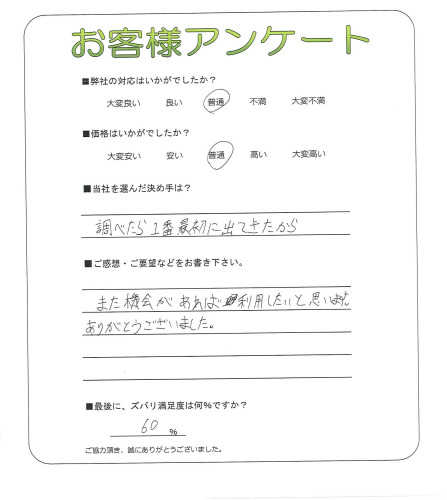 お客様アンケート
■弊社の対応はいかがでしたか?
大変良い 良い 普通 不満 大変不満
■価格はいかがでしたか?
大変安い 安い 普通 高い 大変高い
■当社を選んだ決め手は?
調べたら1番最初に出てきたから
■ご感想・ご要望などをお書き下さい。
また機会があれば利用したいと思います。
ありがとうございました。
■最後に、ズバリ満足度は何%ですか?
60 %
ご協力頂き、誠にありがとうございました。